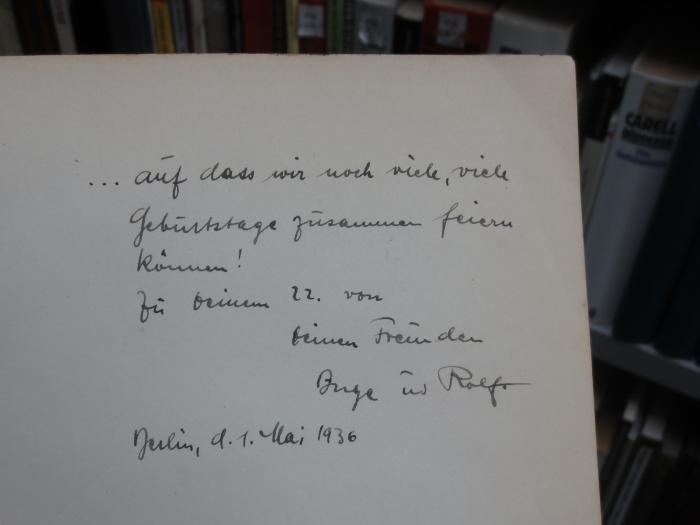 ... auf dass wir noch viele, viele
Geburtstage zusammen feiern
können!
Zu deinem 22. von
deinen Freunden
Inge und Rolf
Berlin, d. 1. Mai 1936
CARELL